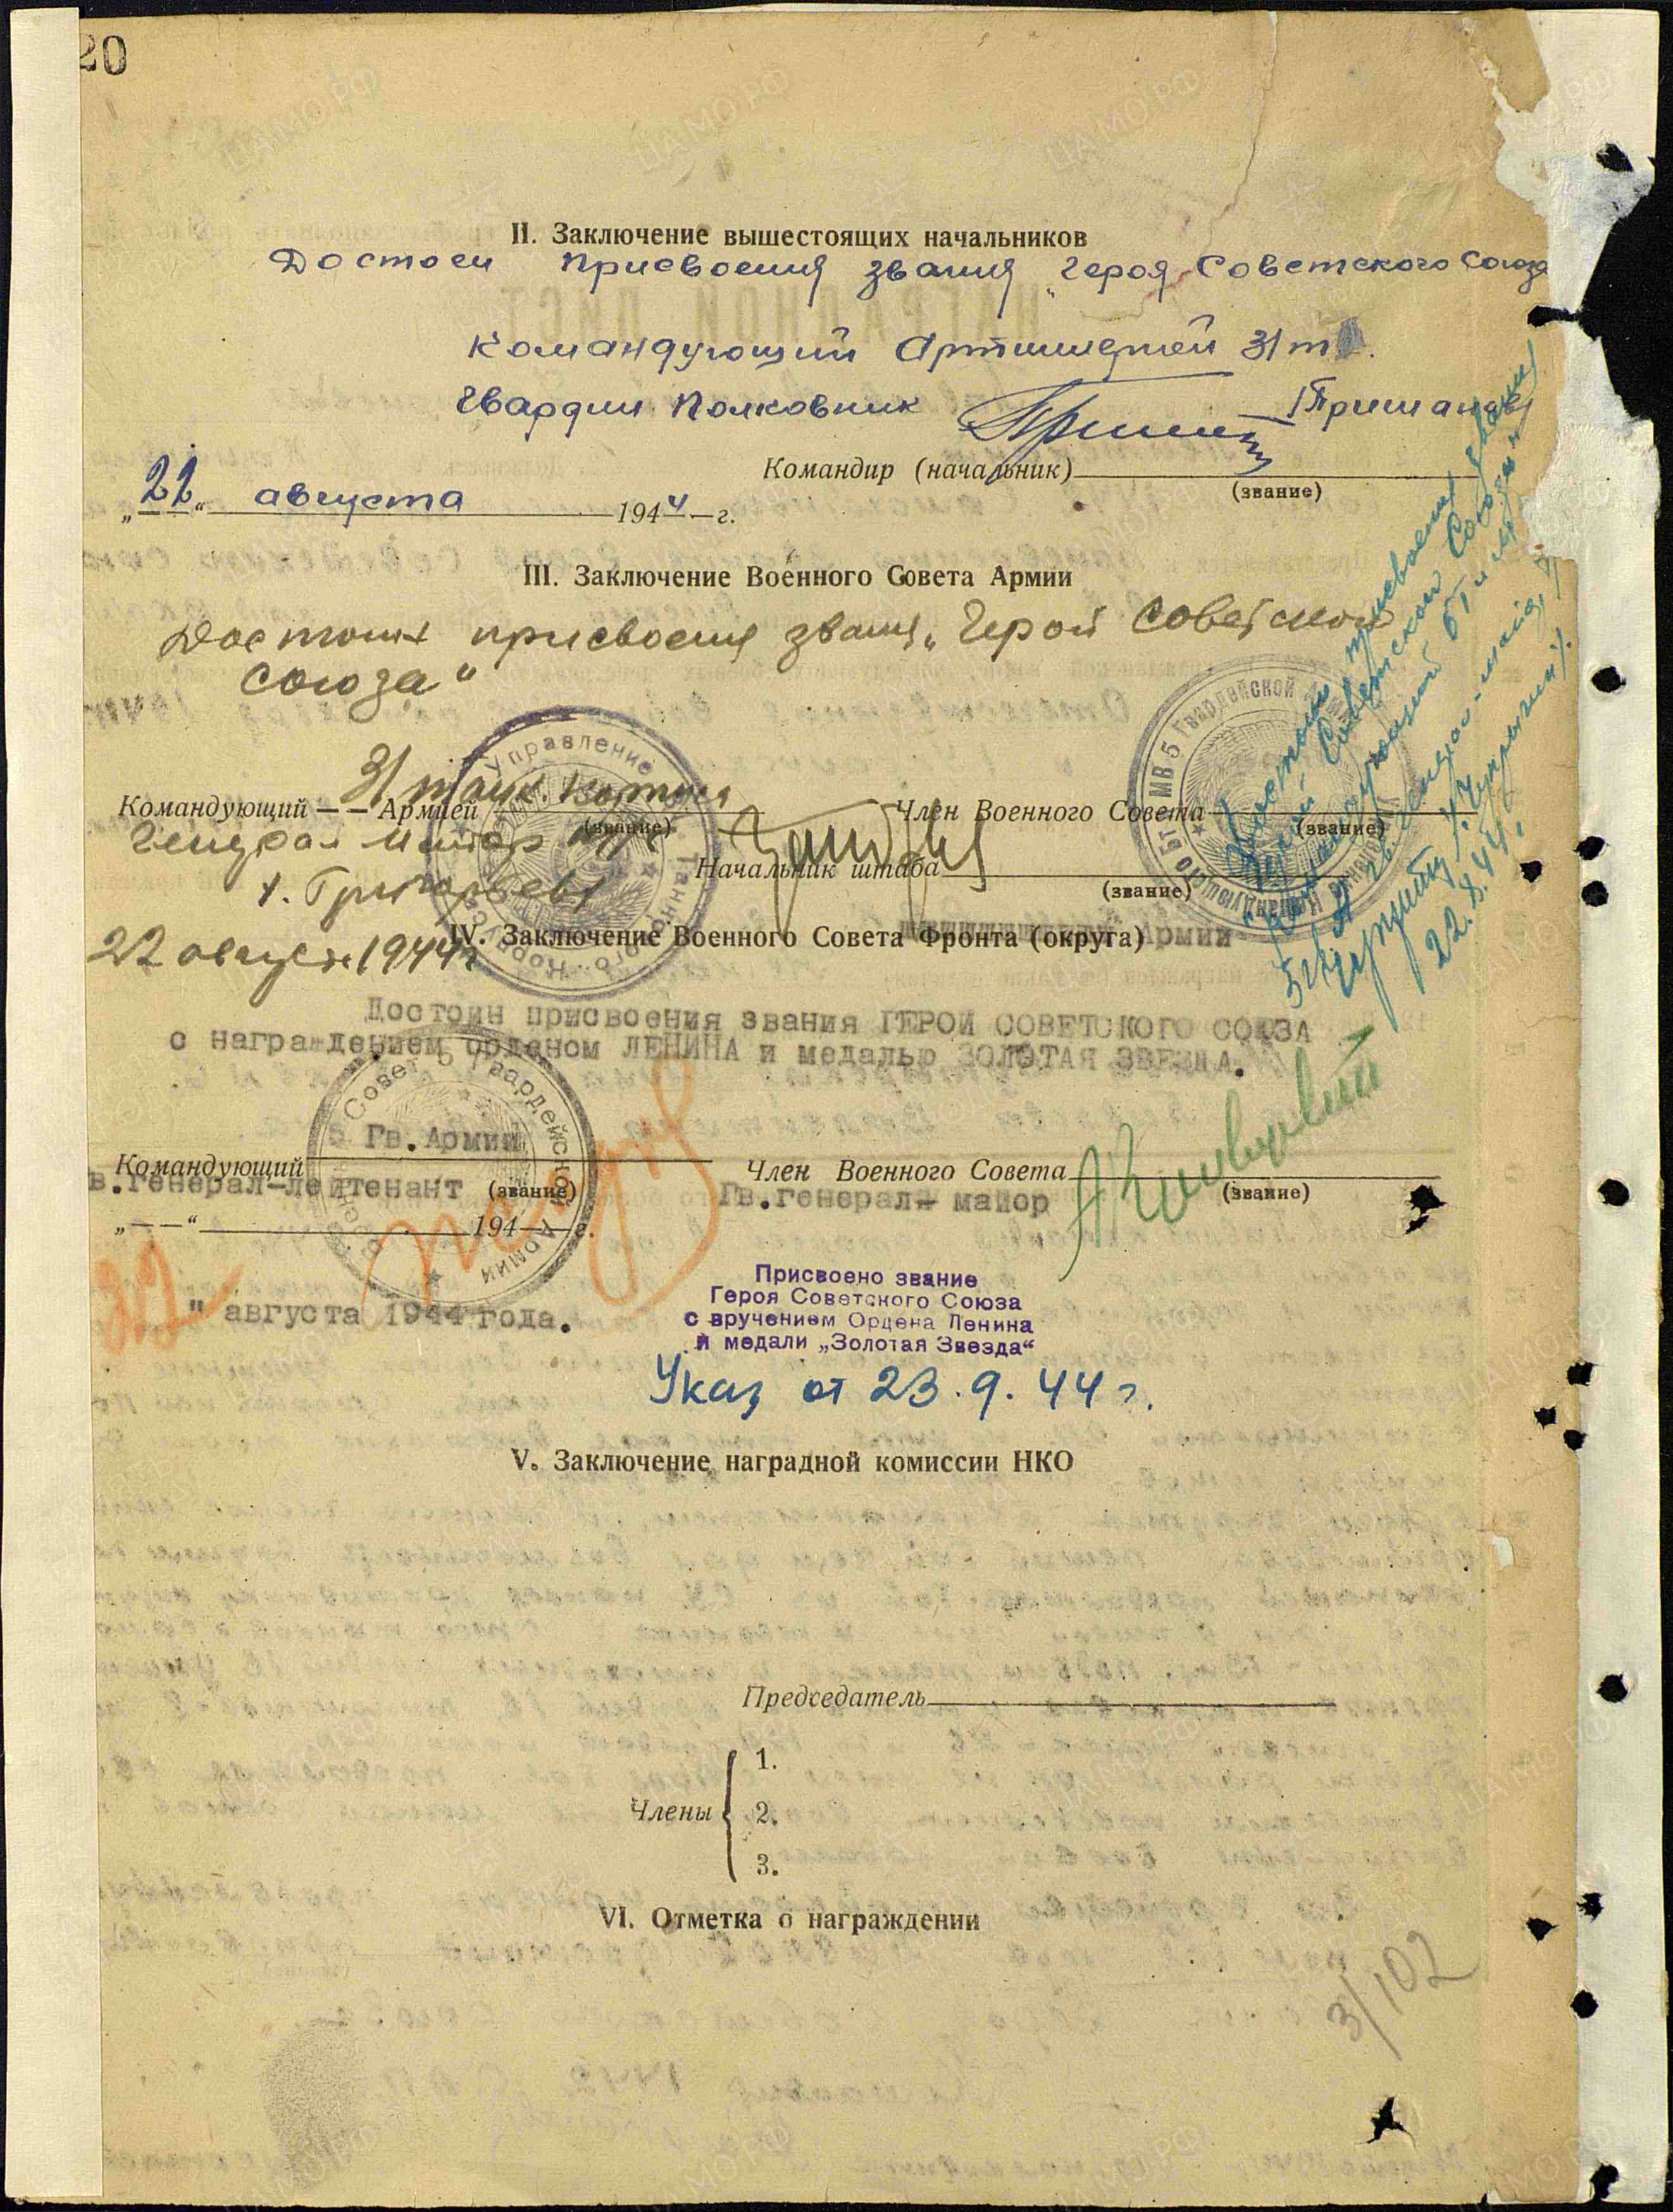 20
II. Заключение вышестоящих начальников
Достоен присвоения звания „Героя Советского Союза
Командующий Артиллерией 31 т
Гвардии Полковник
Командир (начальник)
(звание)
„22“ августа 1944 г.
III. Заключение Военного Совета Армии
Достоин присвоения звания „Герой Советского
Союза“
31 танк. корпуса
Командующий — — Армией
(звание)
Член Военного Совета
(звание)
Генерал Майор
Начальник штаба
(звание)
т. Григорьев
22 август 1944г
Управление
Танкового Корпуса
5 Гвардейской
Достоин присвоения звания
Герой Советского Союза
Командующий БТ и МВ
22.8.44г.
IV. Заключение Военного Совета Фронта (округа) Армии
Достоин присвоения звания ГЕРОЙ СОВЕТСКОГО СОЮЗА
с награждением орденом ЛЕНИНА и медалью ЗОЛОТАЯ ЗВЕЗДА.
Совет 5 Гвардейской Армии
5 Гв.Армии
Командующий
в.генерал-лейтенант (звание)
Член Военного Совета
Гв.генерал- майор
(звание)
„— —“ 194 г.
22 " августа 1944 года.
Присвоено звание
Героя Советского Союза
с вручением Ордена Ленина
и медали „Золотая Звезда“
Указ от 23.9.44 г.
V. Заключение наградной комиссии НКО
Председатель
Члены
1.
2.
3.
VI. Отметка о награждении
3/102
ЦАМО РФ